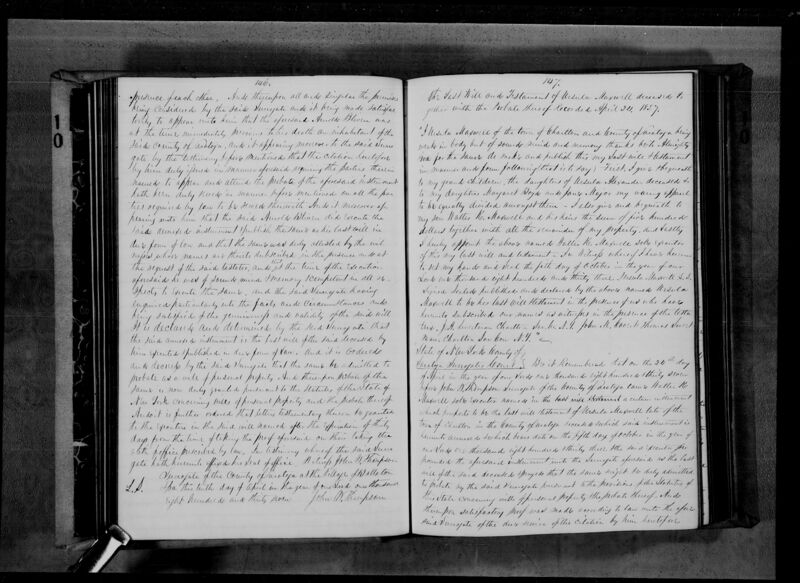 146.
presence of each other. And thereupon all and singular the premises
being considered by the said Surrogate and it being made satisfac
tory to appear unto him that the aforesaid Arnold was
at the time immediately previous to his death an inhabitant of the
said County of Saratoga, and it appearing moreover to the said Surro
gate by the testimony before mentioned that the citation heretofore
by him duly issued in manner aforesaid requiring the parties therein
named to appear and attend the probate of the aforesaid instrument
hath been duly served in manner before mentioned on all the par
ties required by law to be served therewith And it moreover ap
pearing unto him that the said Arnold did execute the
said annexed instrument & publish the same as his last will in
due form of law and that the same was duly attested by the wit
nesses whose names are thereto subscribed in the presence and at
the request of the said testator, and that at the time of the execution
aforesaid he was of sound mind & memory & competent in all re
spects to execute the same, and the said Surrogate having
inquired particularly into the facts and circumstances and
being satisfied of the genuineness and validity of the said will
It is declared and determined by the said Surrogate that
the said annexed instrument is the last will of the said deceased by
him executed & published in due form of law. And it is ordered
and decreed by the said Surrogate that the same be admitted to
probate as a will of personal property And thereupon probate of the
same is now duly granted pursuant to the Statutes of the State of
New York concerning wills of personal property and the probate thereof
And it is further ordered that letters testamentary thereon be granted
to the Executors in the said will named after the expiration of thirty
days from the time of taking the proof aforesaid on them taking the
oath of office prescribed by law. In testimony whereof the said Surro
gate hath hereunto affixed his Seal of office. Witness John W. Thompson
Surrogate of the County of Saratoga at the village of Ballston
L.S. Spa the tenth day of April in the year of our Lord one thousand
eight hundred and thirty seven John W. Thompson
147.
The Last Will and Testament of Ursula Maxwell deceased to
gether with the Probate thereof Recorded April 24, 1837.
I Ursula Maxwell of the town of Charlton and County of Saratoga being
weak in body but of sound mind and memory thanks be to Almighty
God for the same do make and publish this my last will & testament
in manner and form following that is to say, First, I give & bequeath
to my grand children, the daughters of Ursula Alexander deceased &
to my daughters Margaret and all my wearing apparel
to be equally divided amongst them - I also give and bequeath to
my son Walter H. Maxwell and his heirs the sum of five hundred
dollars together with all the remainder of my property, and lastly
I hereby appoint the above named Walter H. Maxwell sole executor
of this my last will and testament. In Witness whereof I have hereun
to set my hand and seal the fifth day of October in the year of our
Lord one thousand eight hundred and thirty three. Ursula Maxwell L.S.
Signed Sealed published and declared by the above named Ursula
Maxwell to be her last will & testament in the presence of us who have
hereunto subscribed our names as witnesses in the presence of the testa
trix. Charlton Sar. Co. N.Y. John M. Thomas
Charlton Sar. Co. N.Y."
State of New York County of
Saratoga Surrogates Court } Be it Remembered that on the 24th day
of April in the year of our Lord one thousand eight hundred & thirty seven
before John W. Thompson Surrogate of the County of Saratoga came Walter H.
Maxwell sole executor named in the last will & produced a certain instrument
which purports to be the last will & testament of Ursula Maxwell late of the
town of Charlton in the County of Saratoga deceased which said instrument is
hereunto annexed & which bears date on the fifth day of October in the year of
our Lord one thousand eight hundred & thirty three the said executor pro
pounded the aforesaid instrument and the Surrogate aforesaid as the last
will of the said deceased & prayed that the same might be duly admitted
to probate by the said Surrogate pursuant to the provisions of the Statutes of
this State concerning wills of personal property & the probate thereof. And
thereupon satisfactory proof was made according to law unto the afore
said Surrogate of the due service of the citation by him heretofore
10